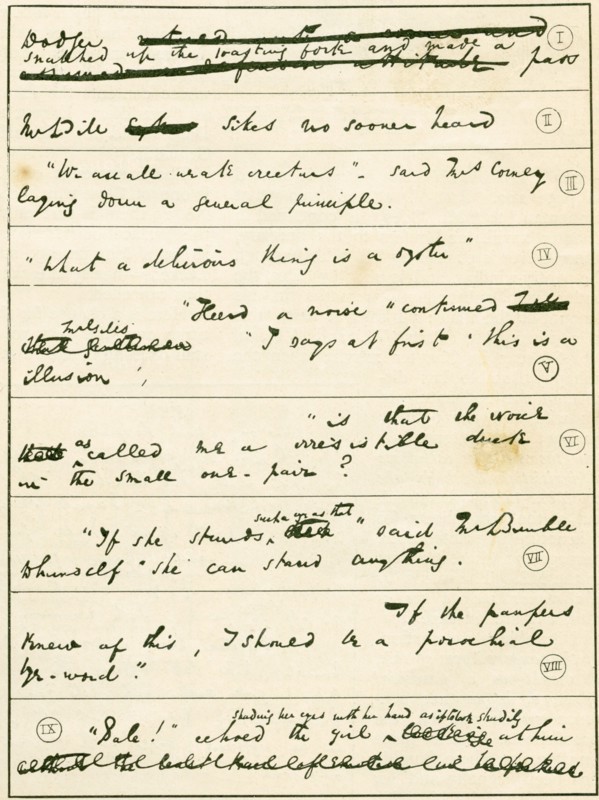 Dodger
snatched up the toasting fork and made a
pass
I
Mr Bill Sikes no sooner heard
II
"We are all weak creeturs" - said Mrs Corney
laying down a general principle.
III
"What a delicious thing is a oyster"
IV
"Heerd a noise" continued
Mr Giles "I says at first 'this is a
illusion',
V
"is that the voice
as called me a irresistible duck
in the small one-pair?
VI
"If she stands such a eye as that" said Mr Bumble
to himself "she can stand anything.
VII
If the paupers
knew of this, I should be a porochial
bye-word."
VIII
IX
shading her eyes with her hand as if to look steadily
"Pale!" echoed the girl at him